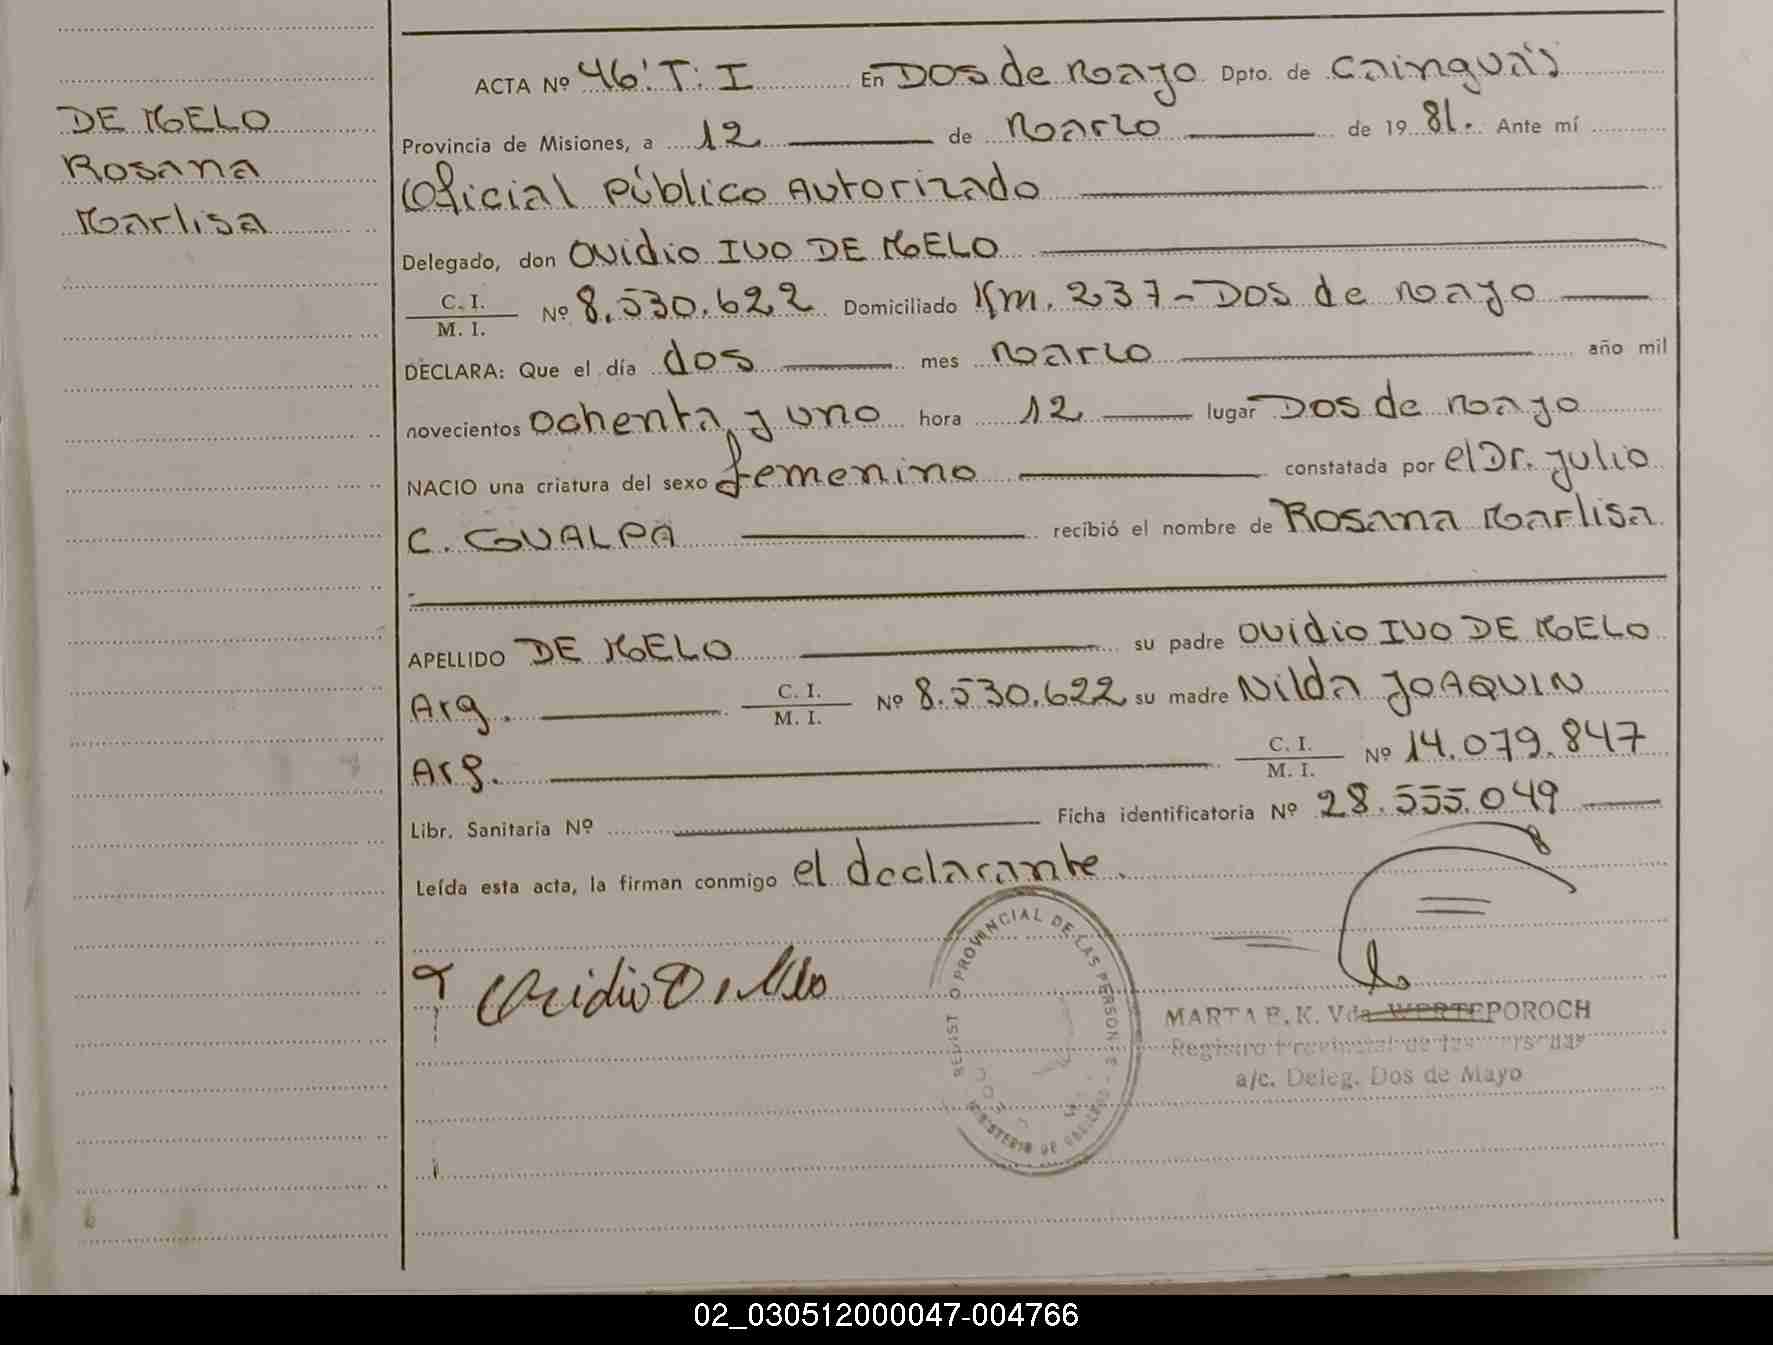 DE MELO
Rosana
Marlisa
ACTA Nº 46: T: I En Dos de Mayo Dpto. de Cainguás
Provincia de Misiones, a 12 de Marzo de 19 81. Ante mí
Oficial Público Autorizado
Delegado, don Ovidio IVO DE MELO
C. I.
M. I. Nº 8.530.622 Domiciliado Km. 237 - Dos de Mayo
DECLARA: Que el día dos mes Marzo año mil
novecientos ochenta y uno hora 12 lugar Dos de Mayo
NACIO una criatura del sexo femenino constatada por el Dr. Julio
C. GUALPA recibió el nombre de Rosana Marlisa
APELLIDO DE MELO su padre Ovidio IVO DE MELO
Arg. C. I. M. I. Nº 8.530.622 su madre Nilda JOAQUIN
Arg. C. I. M. I. Nº 14.079.847
Libr. Sanitaria Nº Ficha identificatoria Nº 28.555.049
Leída esta acta, la firman conmigo el declarante.
Ovidio D. Melo
PROVINCIAL DE LAS PERSON
MINISTERIO DE
MARTA E. K. Vda WERTEPOROCH
Registro Provincial de las Personas
a/c. Deleg. Dos de Mayo
02_030512000047-004766